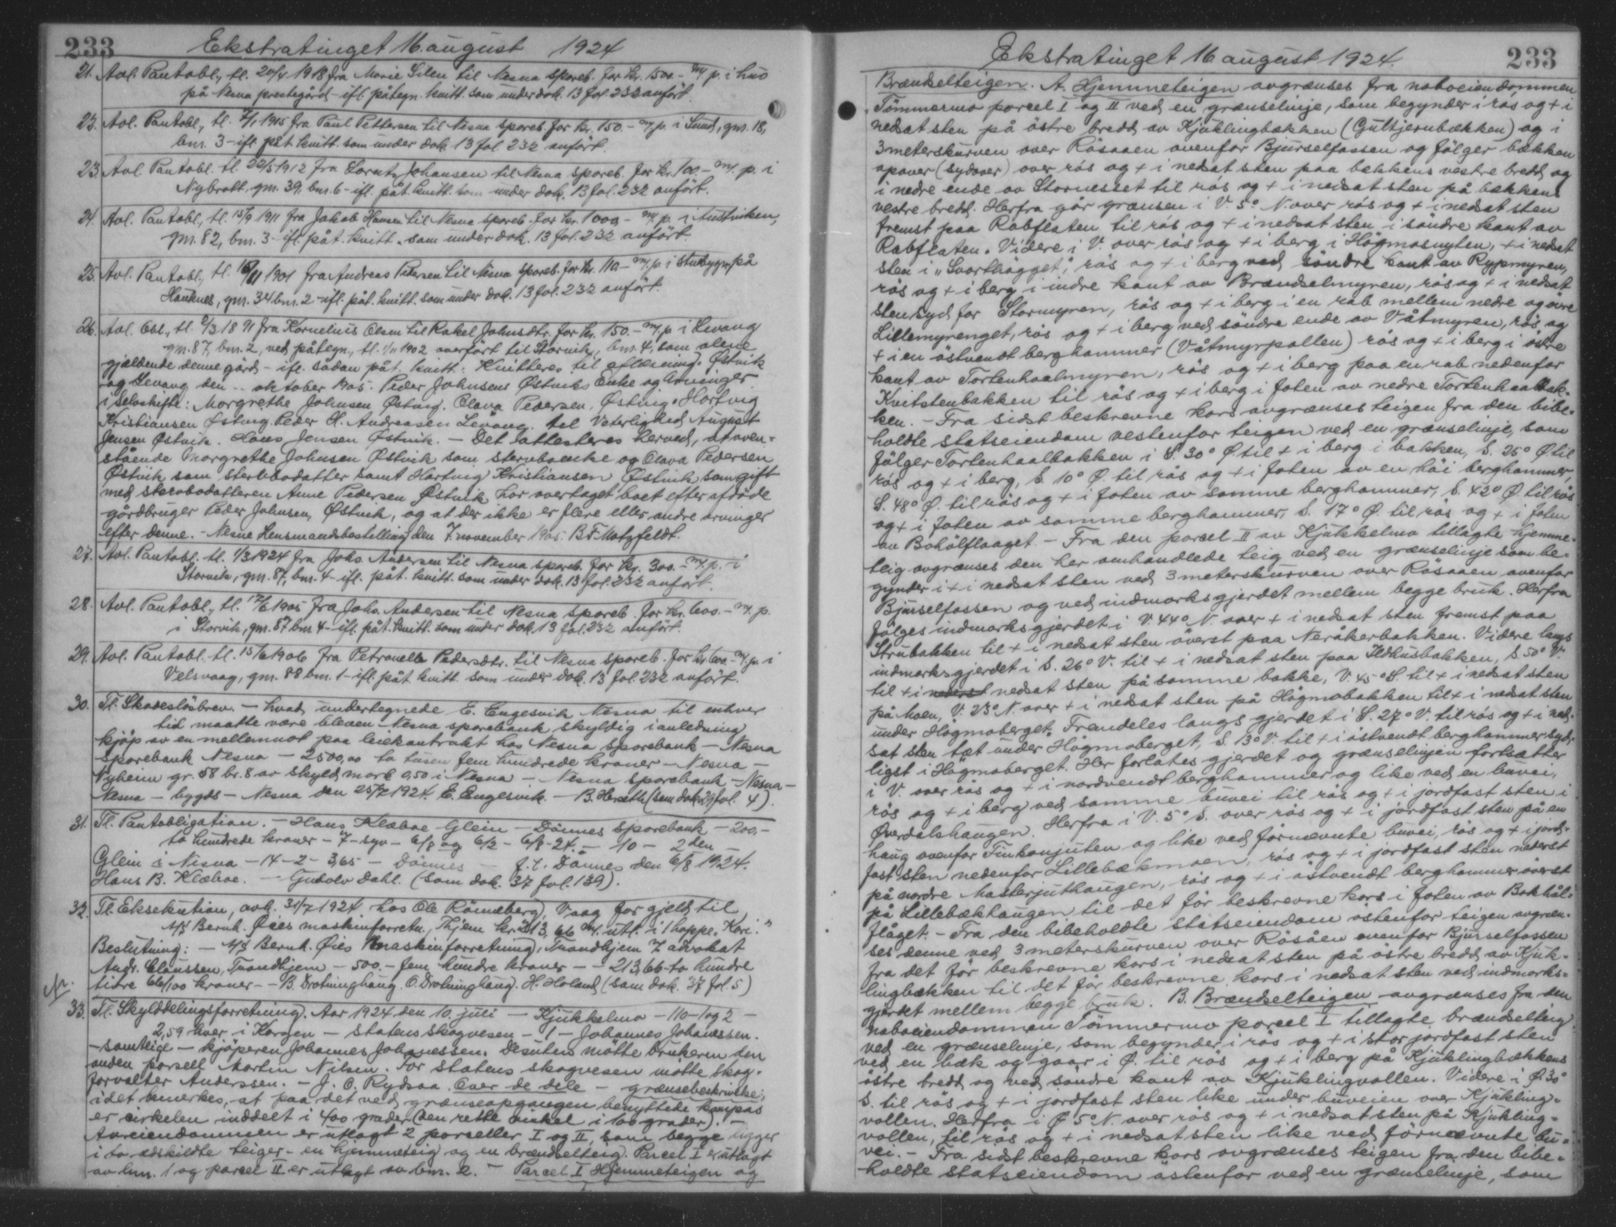 233
Ekstratinget 16 august 1924
21. Avl. Pantobl., tl. 20/4 1918 fra Marie Silen til Nesna spareb. for kr. 1500.- m/p. i hus
på Nesna prestegård - ifl. påtegn. kvitt. som under dok. 13 fol. 232 anfört.
22. Avl. Pantobl., tl. 1905 fra Paul Pettersen til Nesna spareb. for kr. 150.- m/p. i Sund, gnr. 18,
bnr. 3 - ifl. påt. kvitt. som under dok. 13 fol. 232 anfört.
23. Avl. Pantobl. tl. 22/5 1912 fra Lorntz Johansen til Nesna spareb. for kr. 100.- m/. p. i
Nybrott. gnr. 39, bnr. 6 - ifl. påt. kvitt. som under dok. 13 fol. 232 anfört.
24. Avl. Pantobl., tl. 15/9 1911 fra Jakob Hansen til Nesna spareb. for kr. 1000 - m/. p. i
gnr. 82, bnr. 3 - ifl. påt. kvitt. som under dok. 13 fol. 232 anfört.
25. Avl. Pantobl., tl. 1901 fra Andreas Petersen til Nesna spareb. for kr. 110 - m/p. i på
Hauknes, gnr. 34 bnr. 2 - ifl. påt. kvitt. som under dok. 13 fol. 232 anfört.
26. Avl. Obl., tl. 9/3 1891 fra Kornelius Olsen til Rakel Johnsdtr. for kr. 150.- m/p. i Levang
gnr. 87, bnr. 2, ved påtegn., tl. 1/11 1902 overfört til Storvik, bnr. 4, som alene
gjeldende denne gård - ifl. sådan påt. kvitt.: Kvitteres til aflæsning. Østvik
og Levang den .. oktober 1905. Peder Johnsens Østvik, Enke og Arvinger
i Selvskifte: Morgrethe Johnsen Østvig. Olava Pedersen, Østvig. Hartvig
Kristiansen Östvig. Peder H. Andreasen Levang. til Vitterlighed August
Jensen Østvik. Hans Jensen Østvik. - Det attesteres herved, at oven-
stående Morgrethe Johnsen Østvik som stervboenke og Olava Pedersen
Østvik som stervbodatter samt Hartvig Kristiansen Østvik som gift
med stervbodatteren Anne Pedersen Østvik har overtaget boet efter afdøde
gårdbruger Peder Johnsen, Østvik, og at der ikke er flere eller andre arvinger
efter denne. - Nesna Lensmandsbestilling den 7. november 1905. B. F. Motzfeldt.
27. Avl. Pantobl. tl. 1/3 1924 fra Johs Andersen til Nesna spareb. for kr. 300.- m/. p. i
Storvik, gnr. 87, bnr. 4 - ifl. påt. kvitt. som under dok. 13 fol. 232 anfört.
28. Avl. Pantobl., tl. 1905 fra Johs. Andersen til Nesna spareb. for kr. 600.- m/. p.
i Storvik, gnr. 87 bnr. 4 - ifl. påt. kvitt. som under dok. 13 fol. 232 anfört.
29. Avl. Pantobl. tl. 15/6 1906 fra Petronelle Pedersdtr. til Nesna spareb. for kr. 600 - m/. p. i
Velsvaag, gnr. 88 bnr. 1 - ifl. påt. kvitt. som under dok. 13 fol. 232 anfört.
30. Tl. Skadeslösbrev. - hvad undertegnede E. Engesvik Nesna til enhver
tid maatte være bleven Nesna sparebank skyldig i anledning
kjöp av en mellemnot paa leiekontrakt hos Nesna sparebank - Nesna
sparebank Nesna - 2500,00 to tusen fem hundrede kroner - Nesna -
Nyheim gr. 58 br. 8 av skyld mark 0,50 i Nesna - Nesna sparebank - Nesna -
Nesna - bygds - Nesna den 25/7 1924. E. Engesvik - B. (som dok. 29 fol. 4).
31. Tl. Pantobligation. - Hans Klæboe Glein - Dönnes Sparebank - 200,-
to hundrede kroner - 7 - syv - 6/8 og 6/2 - 6/8-24. - 10 - 2 den -
Glein i Nesna - 14 - 2 - 3,65 - Dönnes - f. t. Dönnes den 6/8 1924.
Hans B. Klæboe. - Gudolv Dahl. (som dok. 37 fol. 139).
32. Tl. Eksekution, avh. 31/7 1924 hos Ole Röneberg, Vaag for gjeld til
A/S Bernh. Øies maskinforretn., Thjem kr. 213,66 m/. utl. i 1 hoppe. "Kari."
Beslutning: - A/S Bernh. Øies Maskinforretning, Trondhjem 7 advokat
Andr. Claussen, Trondhjem - 500,- fem hundre kroner - - 213,66 to hundre
titre 66/100 kroner - - B. Drotninghaug. O. Drotninghaug. H. Holand (som dok. 27 fol. 5)
33. Tl. Skylddelingsforretning. Aar 1924 den 10. juli - Kjukkelmo - 110 - 1 og 2 -
2,59 hver i Korgen - statens skogvesen - 1 - Johannes Johanssen.
- samtlige - kjöperen Johannes Johannessen. Desuten mötte brukeren den
anden parsell Martin Nilsen. For statens skogvesen mötte skog-
forvalter Anderssen. - J. O. Rydsaa. Over de dele - grænsebeskrivelse,
idet bemerkes, at paa det ved grænseopgangen benyttede kompas
er cirkelen inddelt i 400 grader (den rette vinkel i 100 grader). -
Av eiendommen er utlagt 2 parseller I og II, som begge ligger
i to adskildte teiger - en hjemmeteig og en brændselteig. Parcel I er utlagt
av bnr. 1 og parcel II er utlagt av bnr. 2. - Parcel I Hjemmeteigen og
Ekstratinget 16 august 1924.
233
Brændselteigen. A. Hjemmeteigen avgrænses fra naboeiendommen
Tömmermo parcel I og II ved en grænselinje, som begynder i rös og + i
nedsat sten på östre bredd av Kjuklingbækken (Gultjernbækken) og i
3 meterskurven over Rösaaen ovenfor Bjurselfossen og fölger bækken
opover (sydover) over rös og + i nedsat sten paa bækkens vestre bredd og
i nedre ende av Stornesset til rös og + i nedsat sten på bækkens
vestre bredd. Herfra går grænsen i V 5° N. over rös og + i nedsat sten
fremst paa Rabflaten til rös og + i nedsat sten i söndre kant av
Rabflaten. Videre i V. over rös og + i berg i Högmosnyten, + i nedsat
sten i "Svorthögget", rös og + i berg ved söndre kant av Rypmyren,
rös og + i berg i indre kant av Brændselmyren, rös og + i nedsat
sten syd for Stormyren, rös og + i berg i en rab mellem nedre og övre
Lillemyrenget, rös og + i berg ved söndre ende av Våtmyren, rös og
+ i en östvendt berghammer (Våtmyrpallen) rös og + i berg i östre
kant av Tortenhaalmyren, rös og + i berg paa en rab nedenfor
Kvitstenbakken til rös og + i berg i foten av nedre Tortenhaalbak-
ken. - Fra sidst beskrevne kors avgrænses teigen fra den bibe-
holdte statseiendom vestenfor teigen ved en grænselinje, som
fölger Tortenhaalbakken i S. 30° Ø til + i berg i bakken, S. 25° Ø til
rös og + i berg, S. 10° Ø. til rös og + i foten av en höi berghammer,
S. 48° Ø. til rös og + i foten av samme berghammer, S. 43° Ø. til rös
og + i foten av samme berghammer, S. 17° Ø. til rös og + i foten
av Bokhölflaaget - Fra den parsel II av Kjukkelmo tillagte hjemme-
teig avgrænses den her omhandlede teig ved en grænselinje som be-
gynder i + i nedsat sten ved 3 meterskurven over Rösaaen ovenfor
Bjurselfossen og ved indmarksgjerdet mellem begge bruk. Herfra
fölges indmarksgjerdet i V. 44° N. over + i nedsat sten fremst paa
Strubakken til + i nedsat sten överst paa Neråkerbakken. Videre langs
indmarksgjerdet i S. 26° V. til + i nedsat sten paa Ildhusbakken, S. 50° V.
til + i nedsat sten på samme bakke, V. 45° S til + i nedsat sten
på Moen, V. 23° N. over + i nedsat sten på Högmobakken til + i nedsat sten
under Högmoberget. Fremdeles langs gjerdet i S. 27° V. til rös og + i ned-
sat sten tæt under Högmoberget, S. 13° V. til + i östvendt berghammer syd-
ligst i Högmoberget. Her forlates gjerdet og grænselinjen fortsætter
i V. over rös og + i nordvendt berghammer og like ved en buvei,
rös og + i berg ved samme buvei til rös og + i jordfast sten i
Överdalshaugen. Herfra i V. 5° S. over rös og + i jordfast sten på en
haug ovenfor Finkonjuten og like ved fornævnte buvei, rös og + i jord-
fast sten nedenfor Lillebækmoen, rös og + i jordfast sten nederst
på nordre Materjuthaugen, rös og + i östvendt berghammer överst
på Lillebækhaugen til det för beskrevne kors i foten av Bokhöl-
flåget. - Fra den bibeholdte statseiendom östenfor teigen avgræn-
ses denne ved 3 meterskurven over Rösåen ovenfor Bjurselfossen
fra det för beskrevne kors i nedsat sten på östre bredd av Kjuk-
lingbækken til det för beskrevne kors i nedsat sten ved indmarks-
gjerdet mellem begge bruk. B. Brændselteigen avgrænses fra den
naboeiendommen Tömmermo parcel I tillagte brændselteig
ved en grænselinje, som begynder i rös og + i stor jordfast sten
ved en bæk og gaar i Ø til rös og + i berg på Kjuklingbækkens
östre bredd og ved söndre kant av Kjuklingvollen. Videre i Ø 30°
S. til rös og + i jordfast sten like under buveien over Kjukling-
vollen. Herfra i Ø 5° N. over rös og + i nedsat sten på Kjukling-
vollen, til rös og + i nedsat sten like ved förnævnte bu-
vei. - Fra sidst beskrevne kors avgrænses teigen fra den bibe-
holdte statseiendom östenfor ved en grænselinje, som